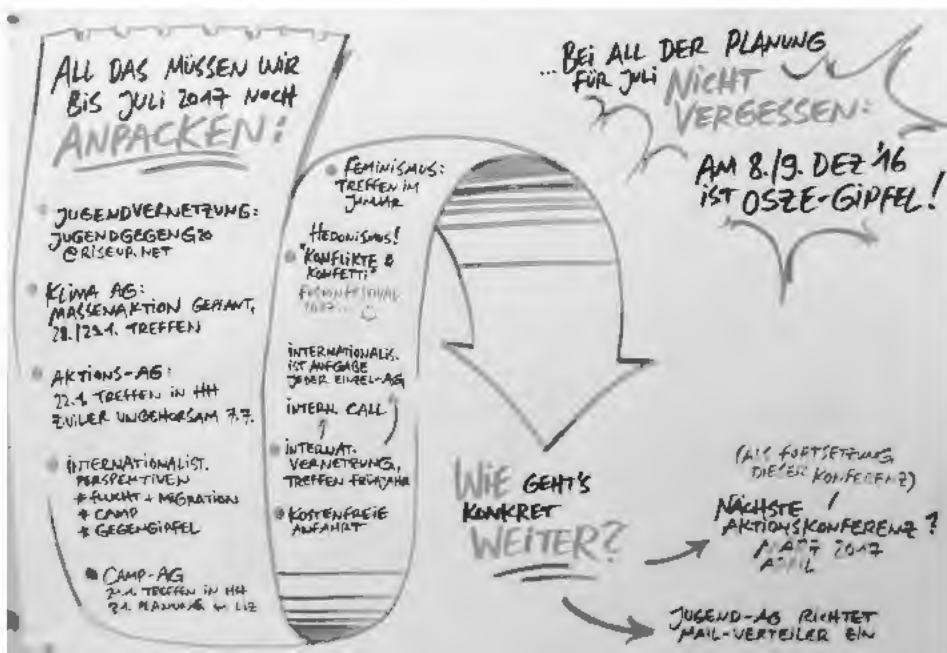 ALL DAS MÜSSEN WIR
BIS JULI 2017 NOCH
ANPACKEN:
JUGENDVERNETZUNG:
JUGENDGEGENG20
@RISEUP.NET
KLIMA AG:
MASSENAKTION GEPLANT,
TREFFEN
AKTIONS-AG:
22.1 TREFFEN IN HH
ZIVILER UNGEHORSAM 7.7.
INTERNATIONALIST.
PERSPEKTIVEN
* FLUCHT + MIGRATION
* CAMP
* GEGENGIPFEL
CAMP-AG
TREFFEN IN HH
PLANUNG LIZ
FEMINISMUS:
TREFFEN IM
JANUAR
HEDONISMUS!
"KONFLIKTE &
KONFETTI"
FUSIONFESTIVAL
2017...
INTERNATIONALIS.
IST AUFGABE
JEDER EINZEL-AG
INTERN. CALL
INTERNAT.
VERNETZUNG,
TREFFEN FRÜHJAHR
KOSTENFREIE
ANFAHRT
...BEI ALL DER PLANUNG
FÜR JULI NICHT
VERGESSEN:
AM 8./9. DEZ '16
IST OSZE-GIPFEL!
WIE GEHT'S
KONKRET
WEITER?
(ALS FORTSETZUNG
DIESER KONFERENZ)
NÄCHSTE
AKTIONSKONFERENZ?
MÄRZ 2017
APRIL
JUGEND-AG RICHTET
MAIL-VERTEILER EIN